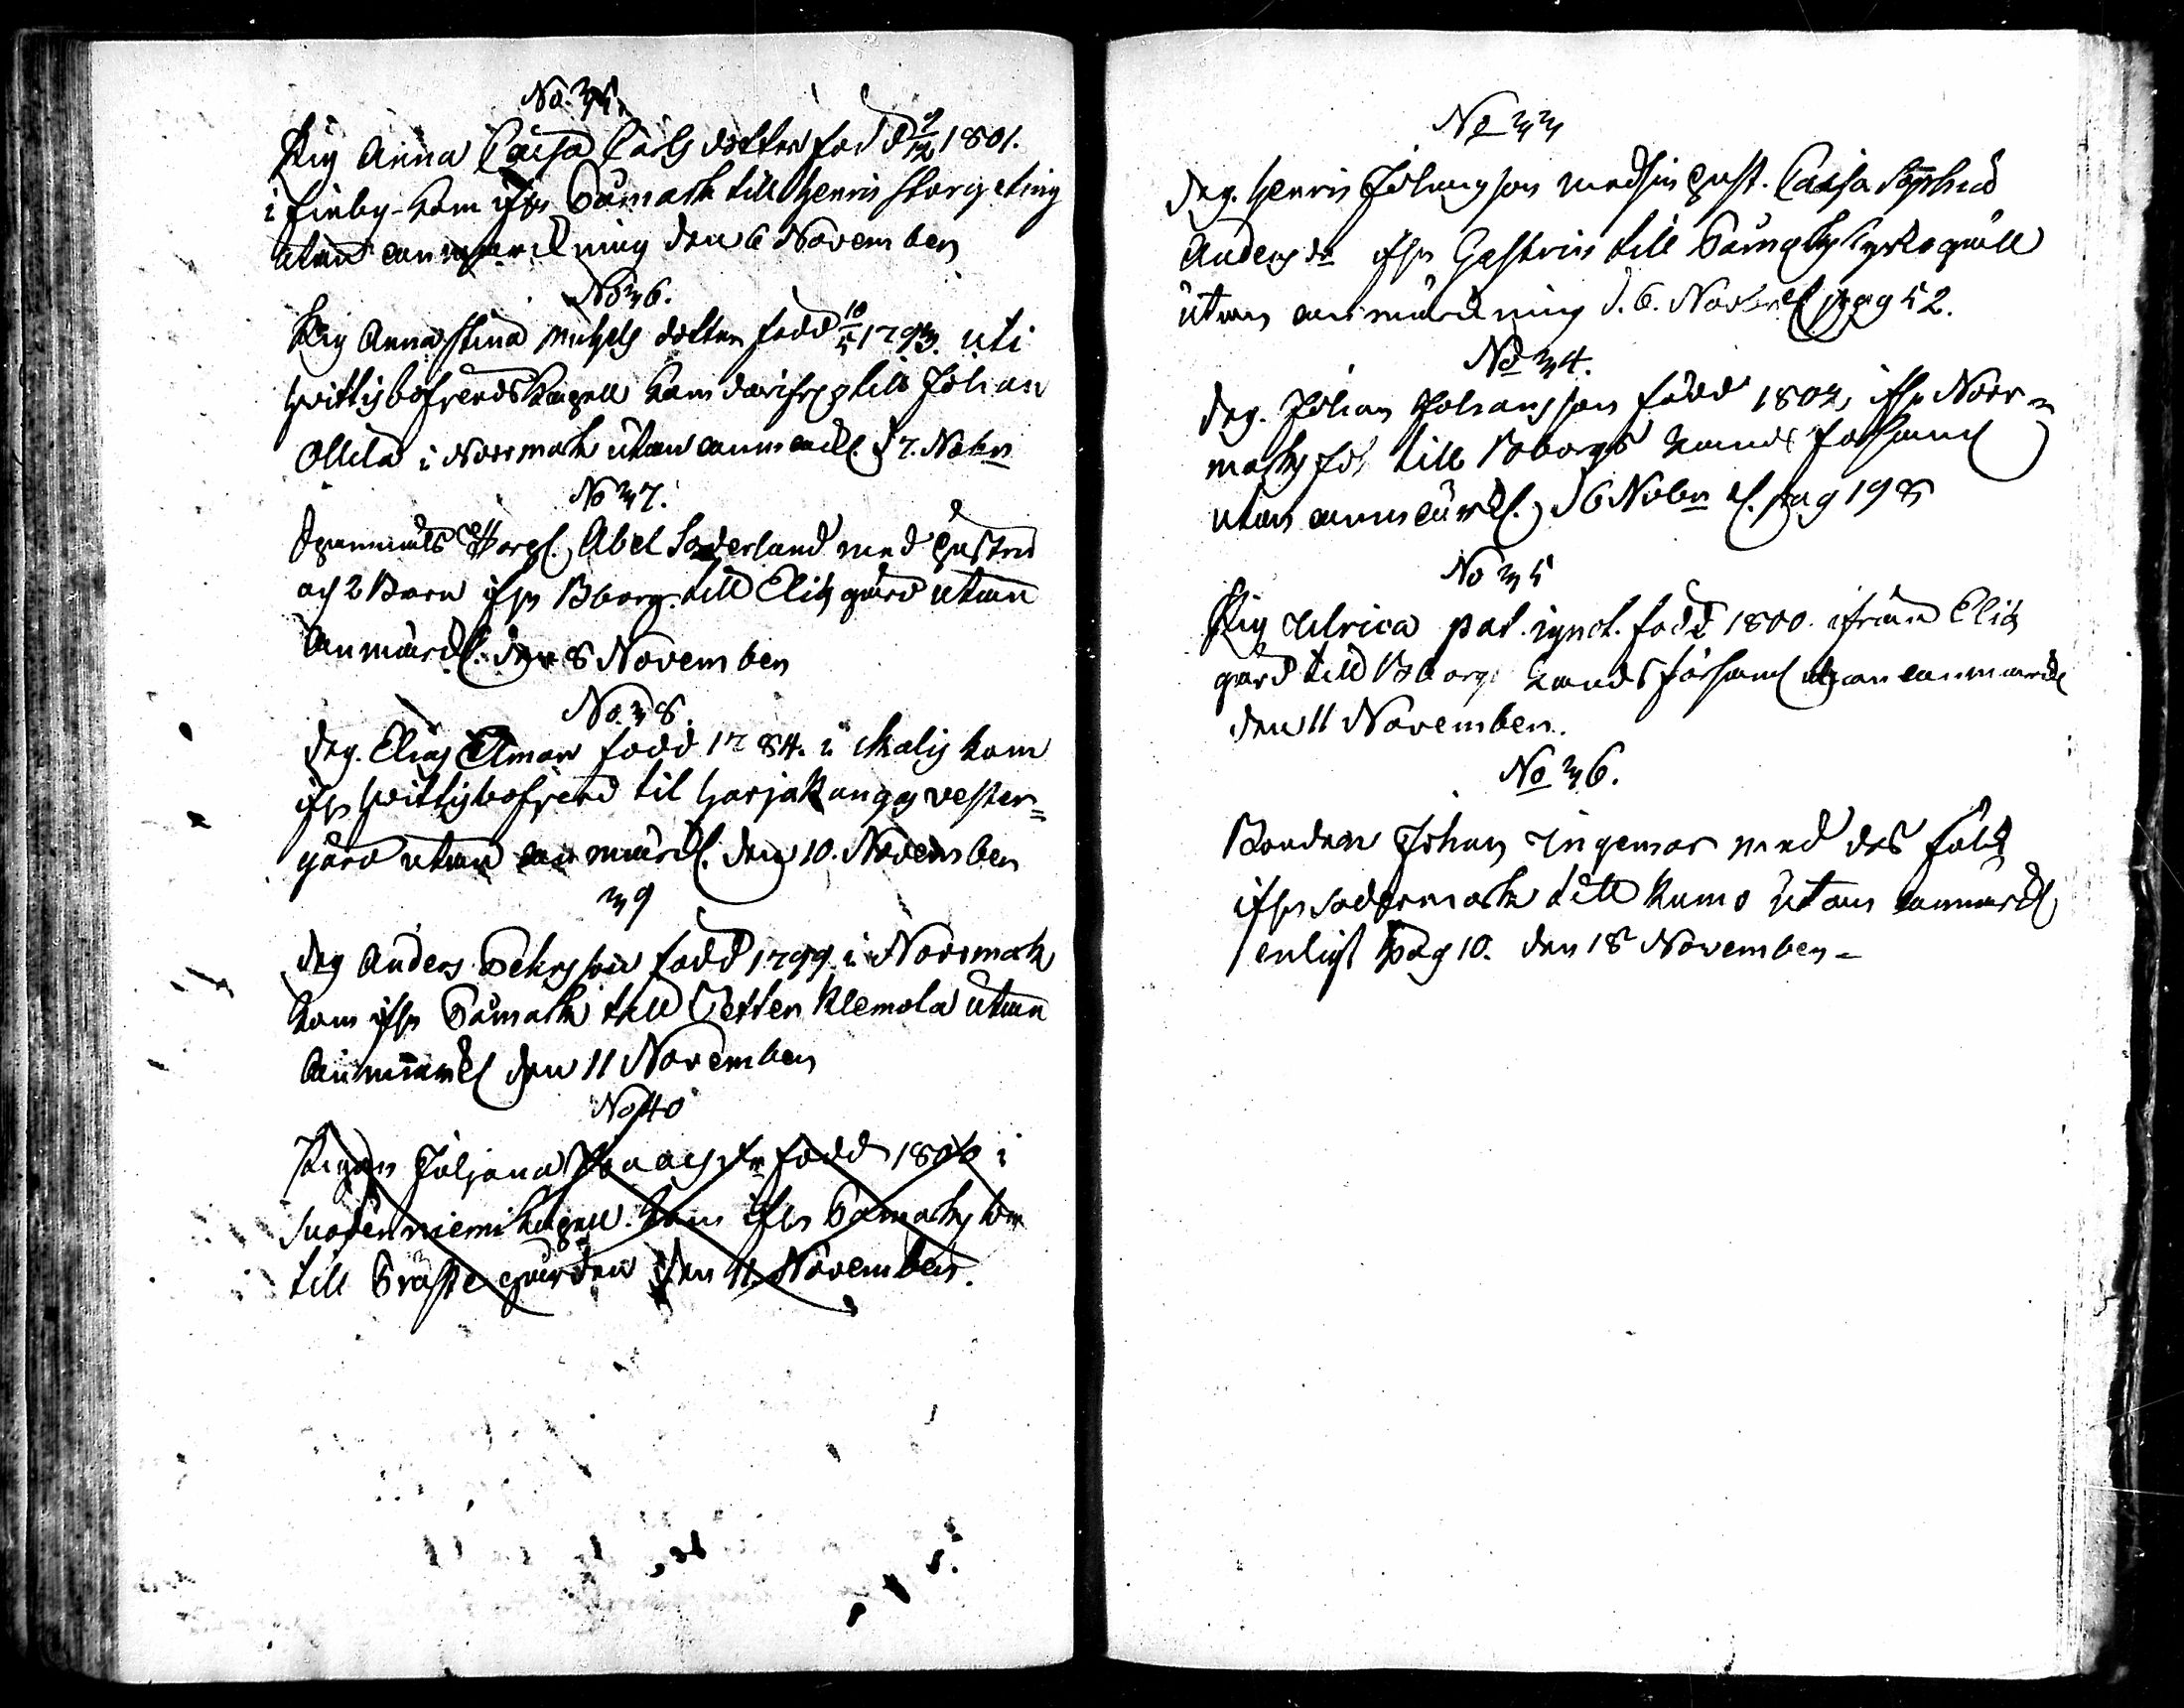 No. 35.
Pig Anna Caisa Carlsdotter född 9/12 1801.
i Finby kom ifrn Påmark till Henric Storgeting
utan anmärckning den 6 November
No 36.
Pig Anna Stina Michels dotter född 10/5 1793. uti
Hvittisbofjerds Kapell kom därifrn till Johan
Ollila i Norrmark utan anmärck. d 7. Nobr
No 37.
Abel Söderland med hustru
och 2 Barn ifrn Bborg till Elis gård utan
Anmärck. den 8 November
No. 38.
drg. Elias Elman född 1784. i kom
ifrn Hvittisbofjerd til Harjakangas vester=
gård utan anmärck. den 10. November
39
drg Anders Pehrsson född 1799 i Norrmark
kom ifrn Påmark till Petter Klemola utan
Anmärck den 11 November
No 40
Pigan Juljana Isaacs dr född 1806 i
Suodenniemi Kapell. kom ifrn Påmarks
till Präste gården den 11. November.
No 33
drg. Henric Johansson med sin hust. Caisa Sophia
Anders dr ifrn till Påmarks Kyrkogäll
utan anmärckning d. 6. Nover pag 52.
No 34.
drg. Johan Johansson född 1802, ifrn Norr=
marks till Bborgs Lands församl
utan anmärck. d 6 Nobr pag 198
No 35
Pig Ulrica pat. ignot. född 1800. ifrån Elis
gård till Bborgs Lands församl utan anmärck
den 11 November.
No 36.
Bonden Johan Ingemar med des folk
ifrn Södermark till Kumo utan anmärck
enligt pag 10. den 18 November -